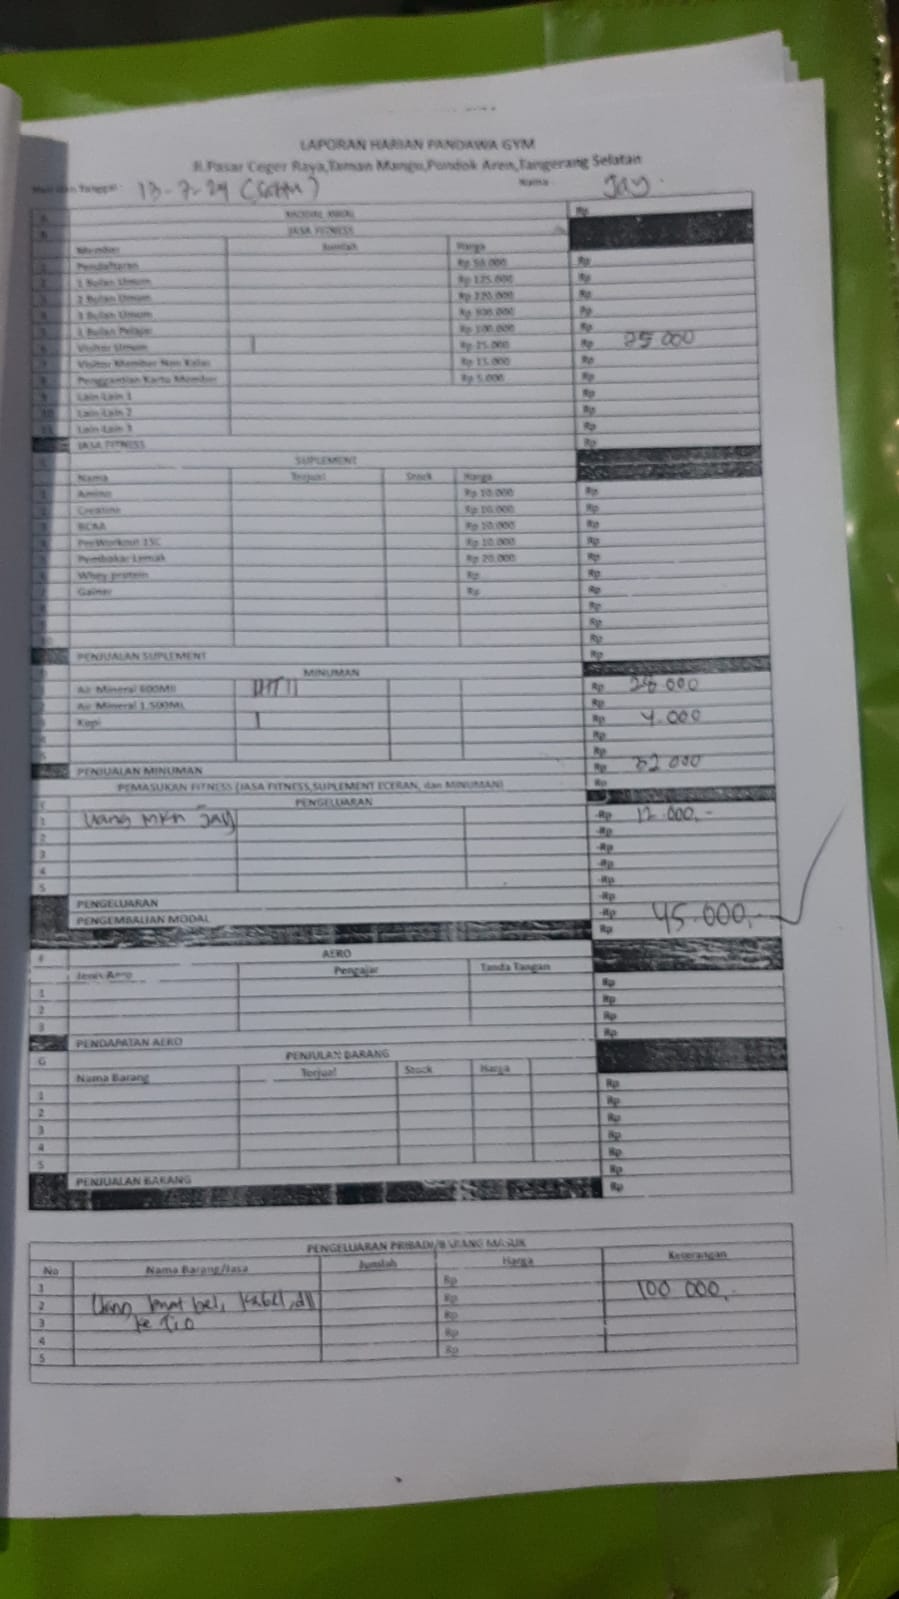 LAPORAN HARIAN PANDAWA GYM
Jl.Pasar Ceger Raya,Taman Mangu,Pondok Aren,Tangerang Selatan
Tanggal : 13-7-24 Nama : Jay.
Rp
JASA FITNESS
Member Jumlah Harga
1 Pendaftaran Rp 50.000 Rp
2 1 Bulan Umum Rp 125.000 Rp
3 2 Bulan Umum Rp 220.000 Rp
4 3 Bulan Umum Rp 300.000 Rp
5 1 Bulan Pelajar Rp 100.000 Rp
6 Visitor Umum | Rp 25.000 Rp 25.000
7 Visitor Member Non Kelas Rp 15.000 Rp
8 Penggantian Kartu Member Rp 5.000 Rp
9 Lain-Lain 1 Rp
10 Lain-Lain 2 Rp
11 Lain-Lain 3 Rp
JASA FITNESS Rp
SUPLEMENT
Nama Terjual Stock Harga
1 Amino Rp 10.000 Rp
2 Creatine Rp 10.000 Rp
3 BCAA Rp 10.000 Rp
4 Rp 10.000 Rp
5 Pembakar Lemak Rp 20.000 Rp
6 Whey protein Rp Rp
7 Gainer Rp Rp
Rp
Rp
Rp
PENJUALAN SUPLEMENT Rp
MINUMAN
Air Mineral 600Ml Rp 28.000
Air Mineral 1.500ML Rp
Kopi | Rp 4.000
Rp
Rp
PENJUALAN MINUMAN Rp 32.000
PEMASUKAN FITNESS (JASA FITNESS,SUPLEMENT ECERAN, dan MINUMAN) Rp
PENGELUARAN
1 Uang mkn Jay -Rp 12.000,-
2 -Rp
3 -Rp
4 -Rp
5 -Rp
PENGELUARAN -Rp
PENGEMBALIAN MODAL -Rp
Rp 45.000,-
F AERO
Jenis Aero Pengajar Tanda Tangan
1 Rp
2 Rp
3 Rp
PENDAPATAN AERO Rp
G PENJULAN BARANG
Nama Barang Terjual Stock Harga
1 Rp
2 Rp
3 Rp
4 Rp
5 Rp
PENJUALAN BARANG Rp
Rp
PENGELUARAN PRIBADI/B UANG MASUK
No Nama Barang/Jasa Jumlah Harga Keterangan
1 Rp
2 Uang buat beli, Kabel, dll Rp 100 000,-
3 ke Tio Rp
4 Rp
5 Rp